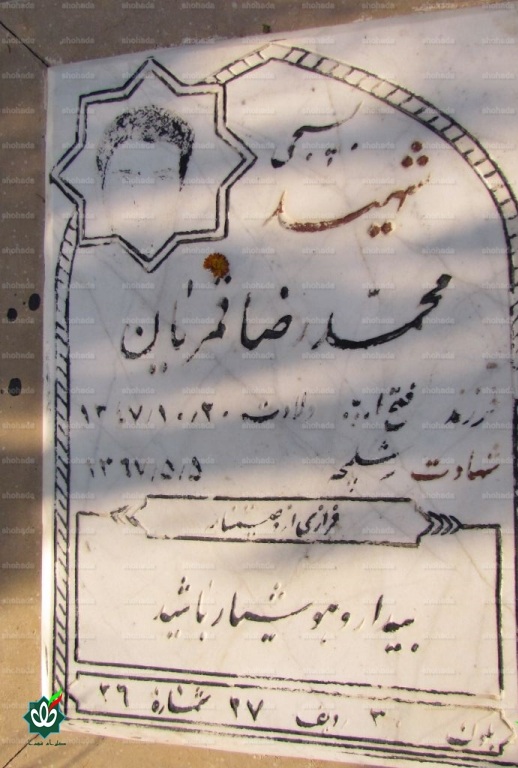 بسیجی
شهید
محمدرضا قمریان
فرزند فتح اله ولادت ۱۳۴۷/۱۰/۲۰
شهادت شلمچه ۱۳۶۷/۵/۵
فرازی از وصیتنامه
بیدار و هوشیار باشید
بلوک ۳۰ ردیف ۲۷ شماره ۲۶
shohada